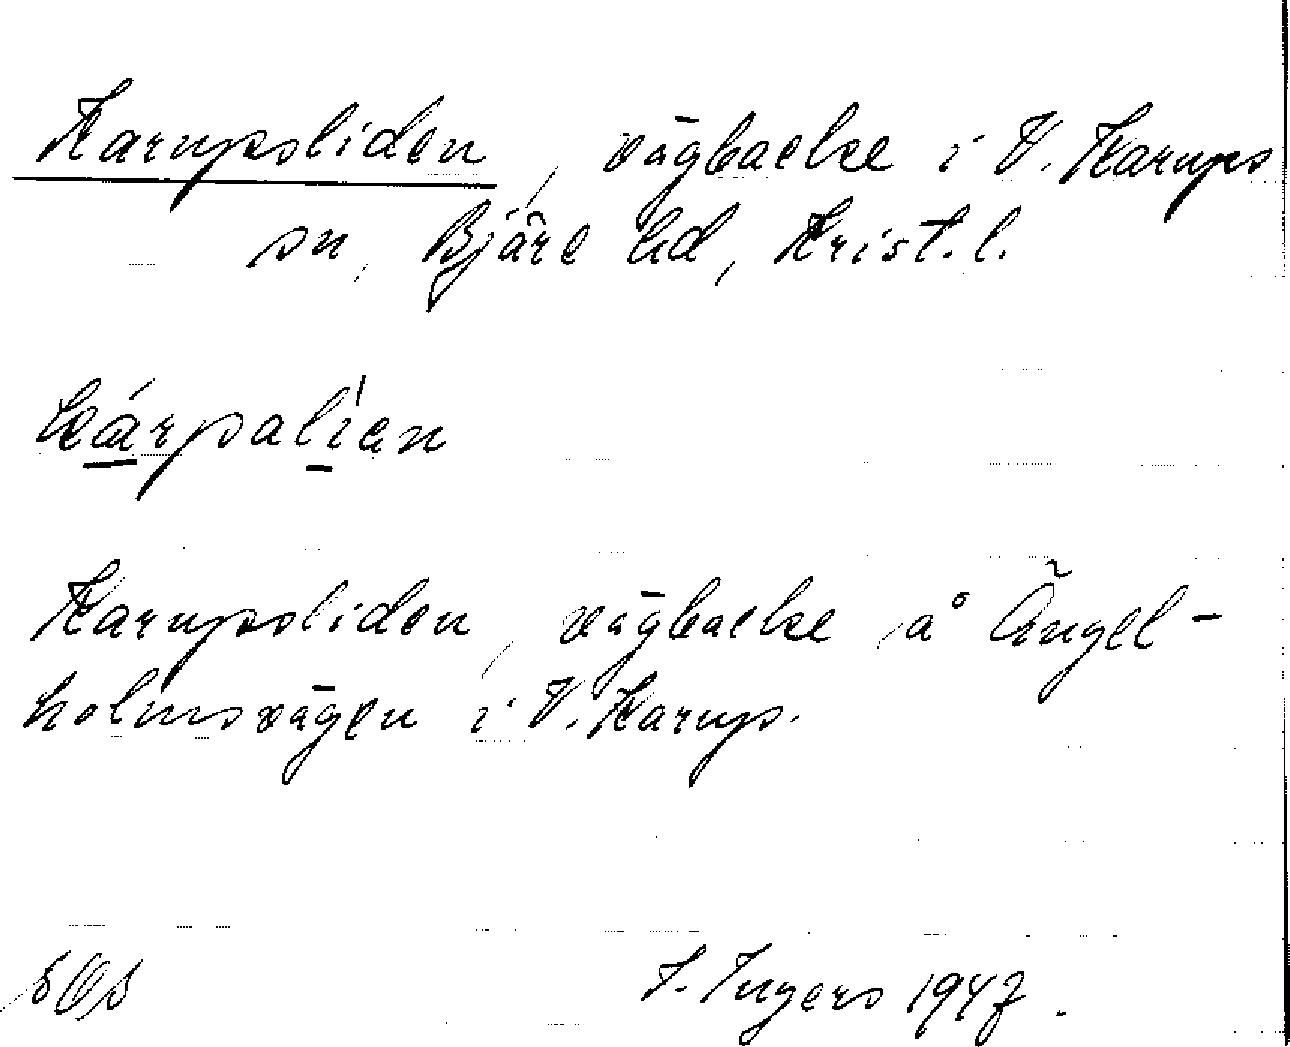 Karupsliden, vägbacke i V. Karups
sn, Bjäre hd, Krist. l.
kárpsalíen
Karupsliden, vägbacke å Ängel-
holmsvägen i V. Karup.
I. Ingers 1947.